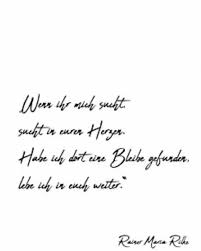 Wenn ihr mich sucht,
sucht in euren Herzen.
Habe ich dort eine Bleibe gefunden,
lebe ich in euch weiter.“
Rainer Maria Rilke